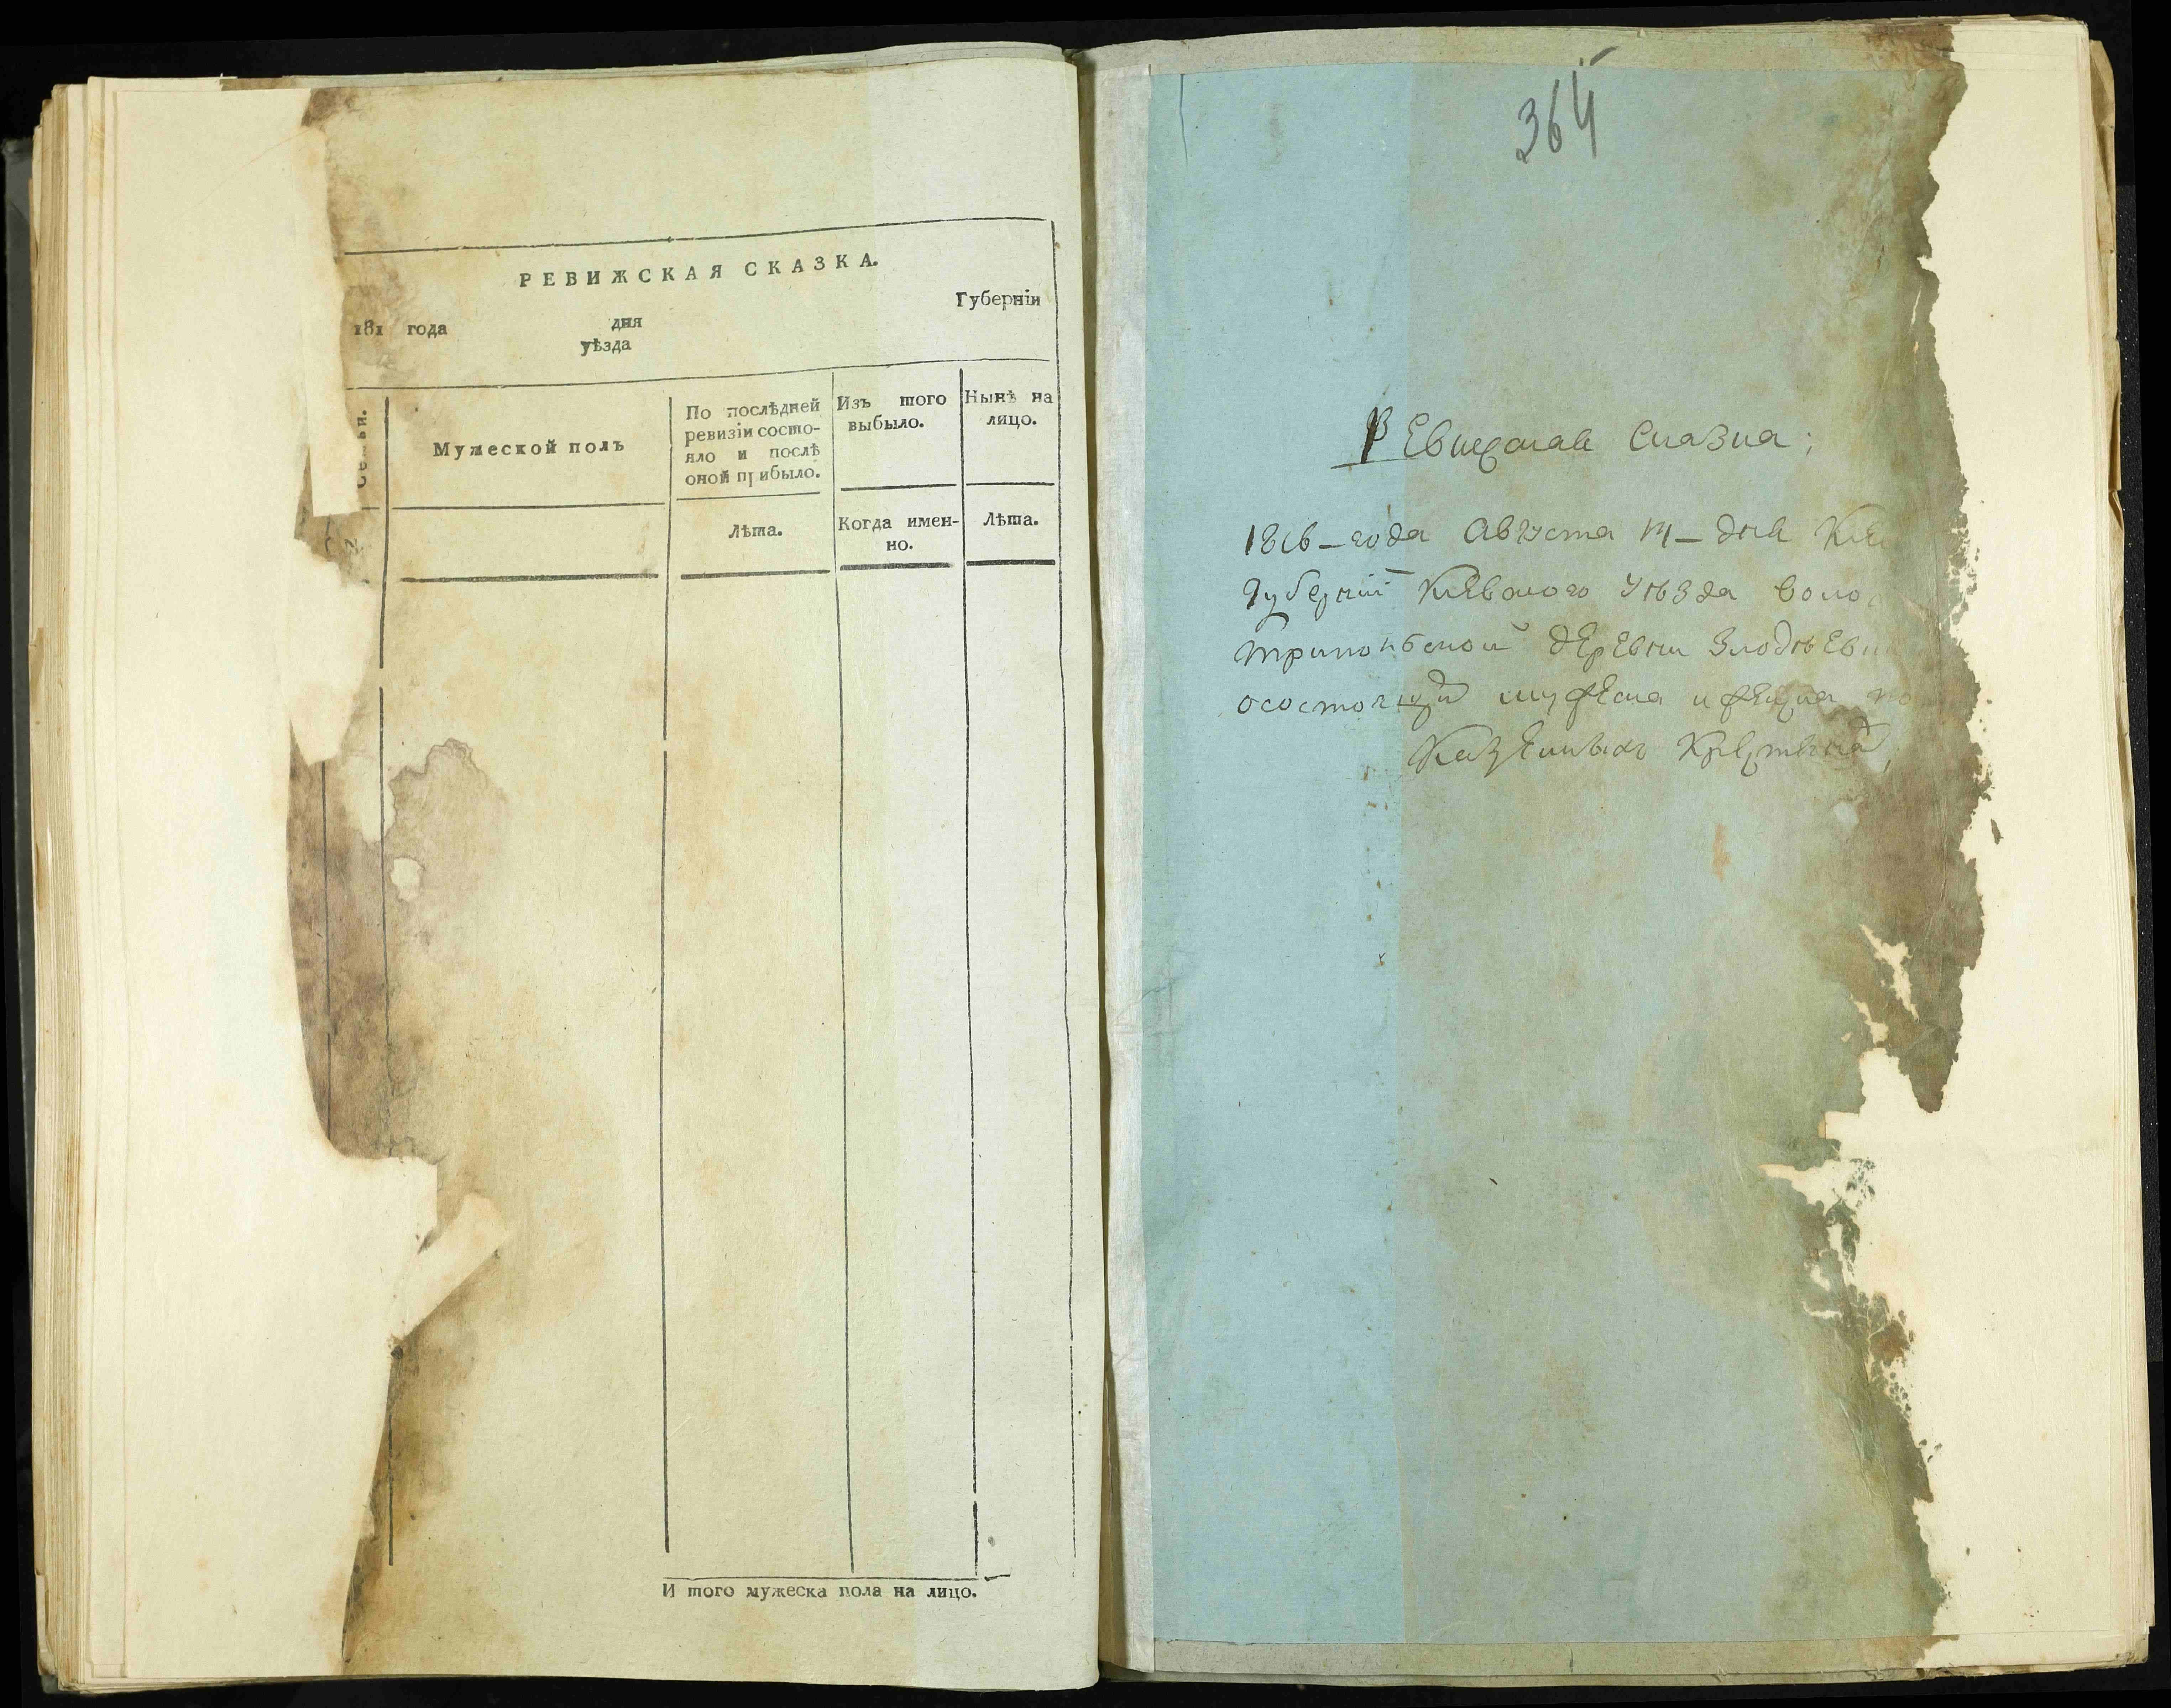 РЕВИЖСКАЯ СКАЗКА.
181 года дня Губерніи
уѣзда
Мужеской полъ
По послѣдней
ревизіи состо-
яло и послѣ
оной прибыло.
Изъ того
выбыло.
Нынѣ на
лицо.
Лѣта.
Когда имен-
но.
Лѣта.
И того мужеска пола на лицо.
364
Ревижская Сказка;
1816 – года Августа – дня
Губерніи Киевского Уѣзда
Трипольской деревни
осостоящихъ мужеска и женска
Казенныхъ Крестьянъ;